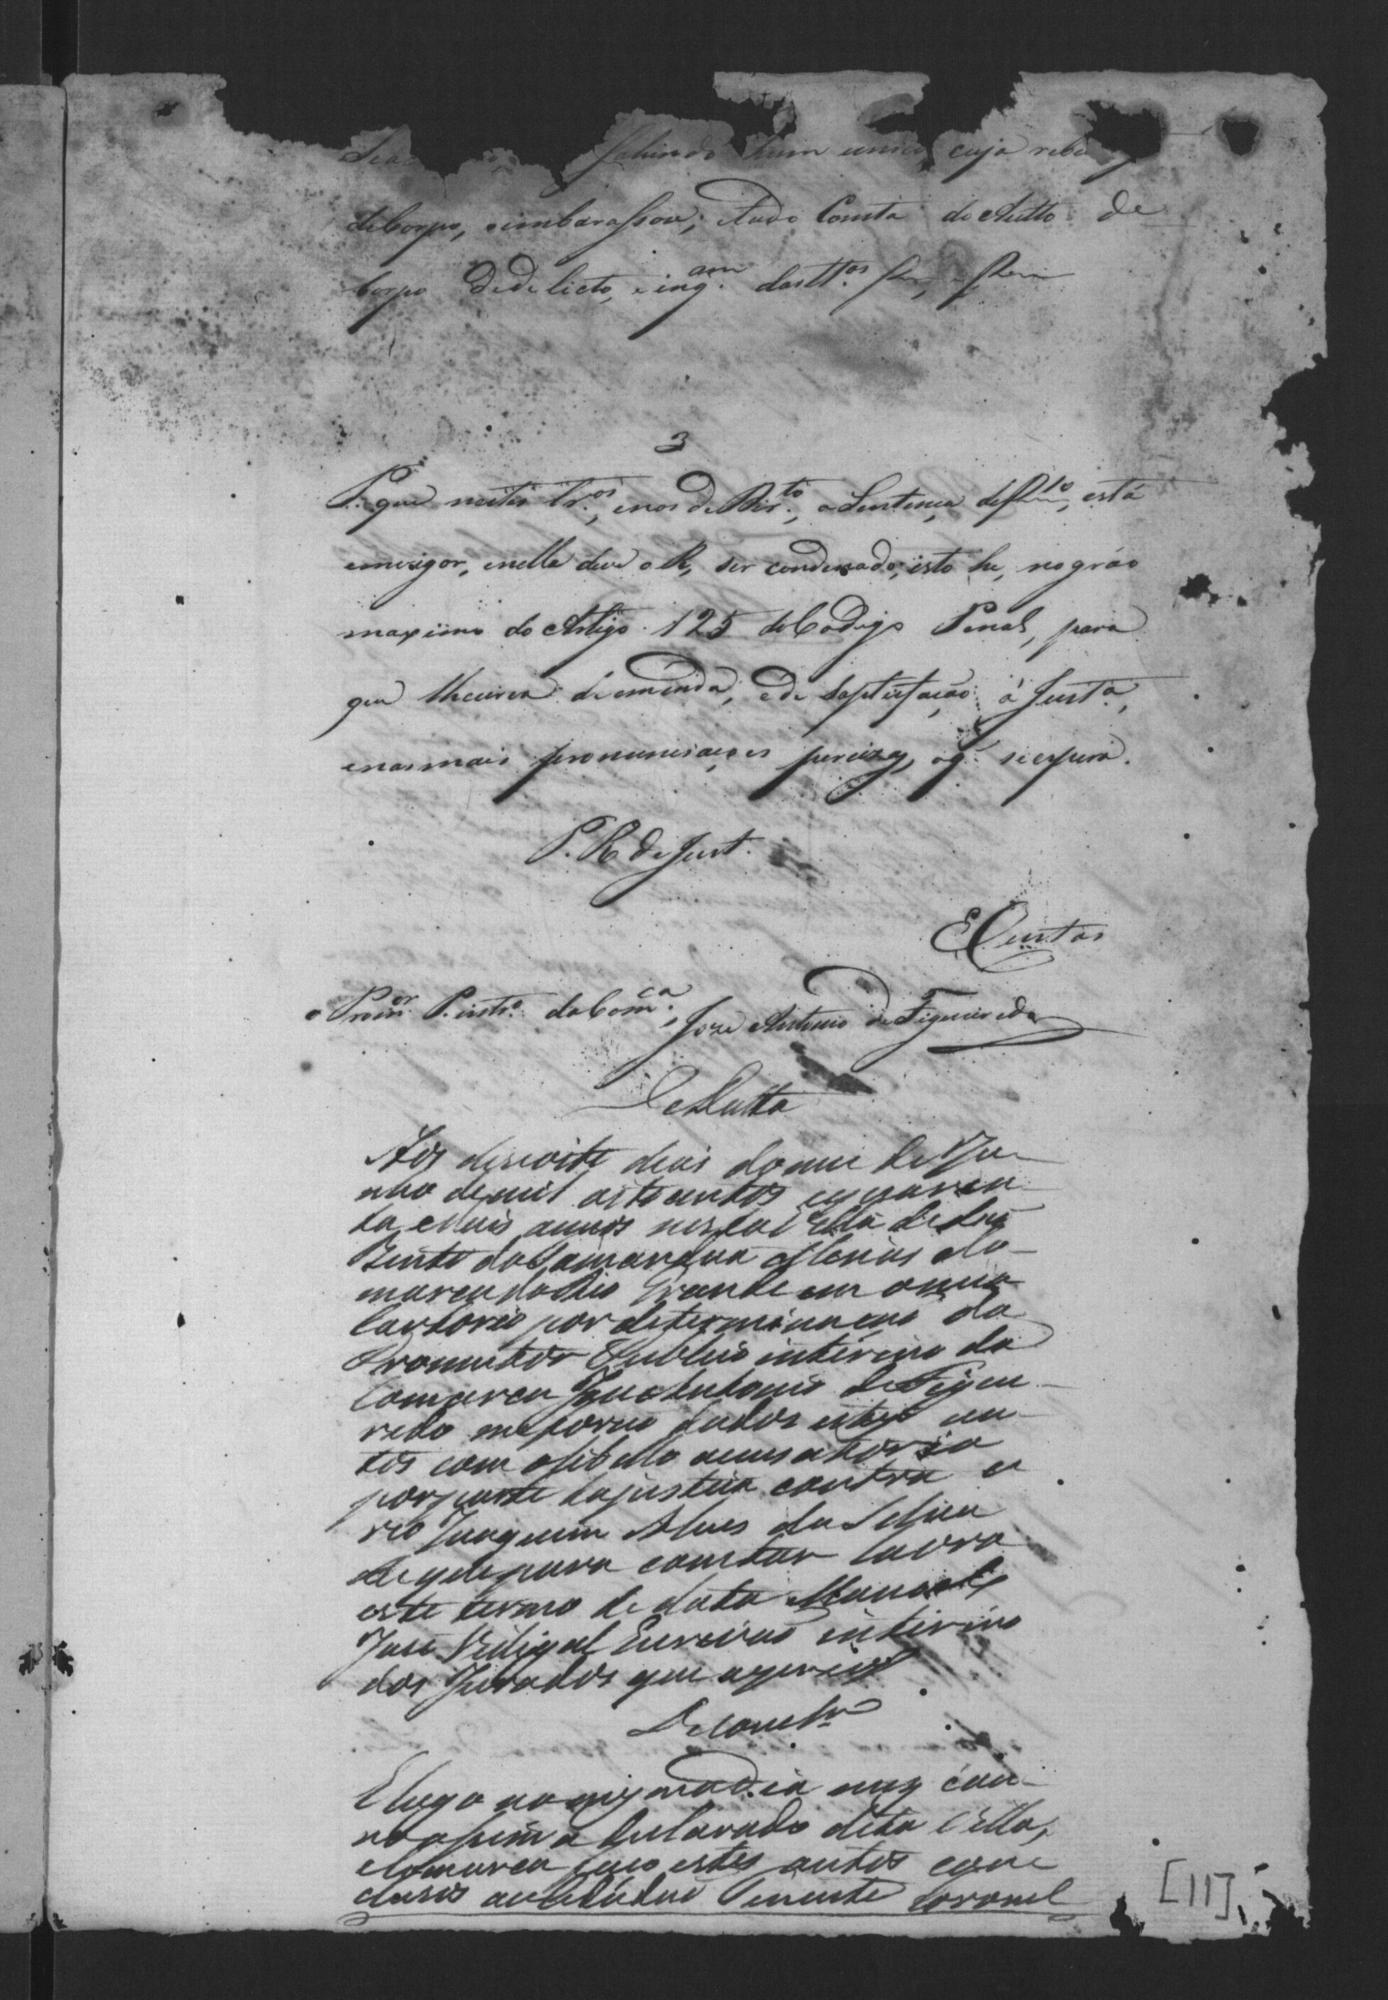 sahindo hum unico, cuja
de Corpo, eimbarassou; tudo Consta do Autto de
Corpo de delicto, e inq.am dastt.os
3
P. que nestes tr.os, e nos de Dir.to, a Sentença está
em vigor, e nella deve o R, ser condenado, isto he, no gráo
maximo do Artigo 125 do Codigo Penal, para
que lhe sirva de emenda, e de satisfação á Just.a,
e nas mais pronunciações percizas, o q. se espera.
P. R. de Just.
E Custas
o Prom.or P. intr.o da Com.ca, Joze Antonio de Figueiredo
De Datta
Aos desoito dias do mes de Ju-
nho de mil oito centos e quaren-
ta e dois annos nesta Villa de São
Bento do Tamandua Minas Co-
marca do Rio Grande em o meu
Cartorio por determinação do
Promutor Publico interino da
Comarca Joze Antonio de Figuei-
redo me forão dados estes au-
tos com o libello acusatorio
por parte da justiça contra o
reo Joaquim Alves da Silva
de que para constar lavro
este termo de data Manoel
José Vidigal Escrivão interino
dos Jurados que a escrevi
De concl.m
E logo no mesmo dia mes e an-
no assima declarado desta Villa,
e Comarca faço estes autos con-
clusos ao Cidadão Tenente Coronel
[11]